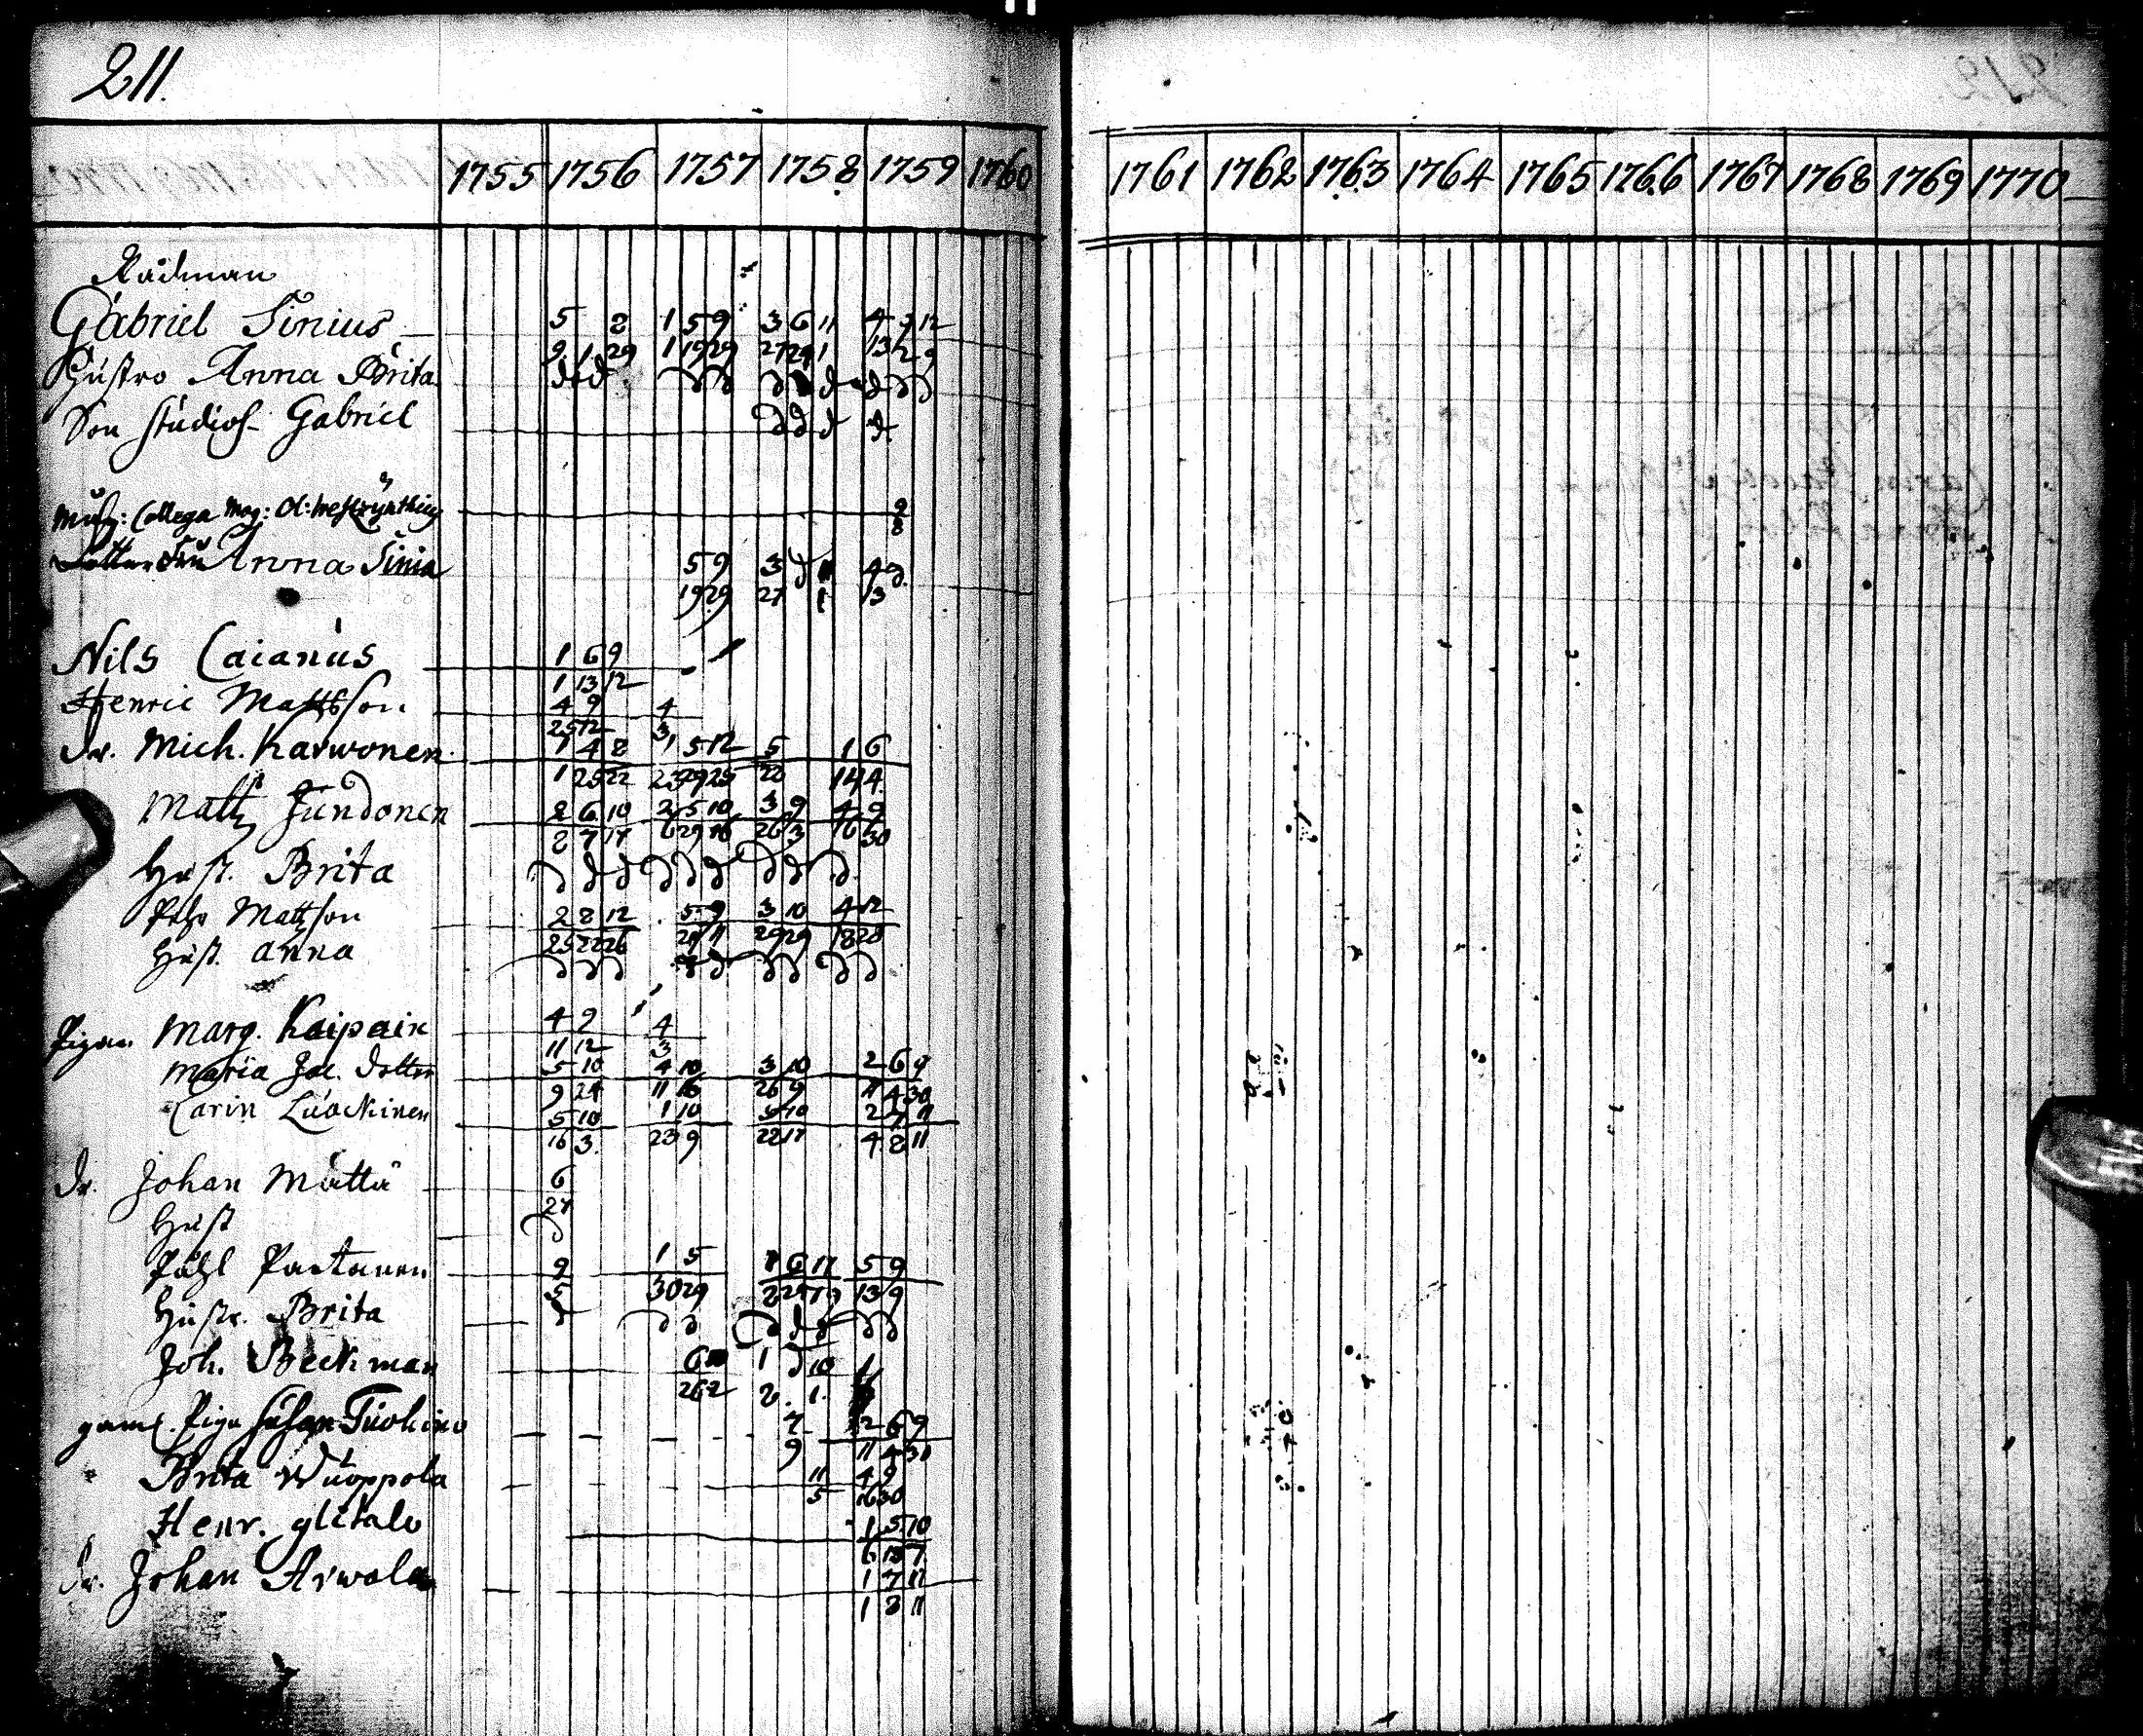 211.
1755 1756 1757 1758 1759 1760
1761 1762 1763 1764 1765 1766 1767 1768 1769 1770
Rådman
Gabriel Sinius 5 8 1 5 9 3 6 11 4 9 12
9 1 29 1 19 29 27 29 1 13 2 9
Hustro Anna Brita
Son studios Gabriel
Collega Mag: 9
8
Anna Sinia 5 9 3 d 11 4 d
19 29 27 1 13
Nils Caianus 1 6 9
1 13 12
Henric Mattsson 4 9 4
25 12 3
Dr. Mich. Karwonen 1 4 8 1 5 12 5 1 6
1 25 22 23 29 25 28 14 4
Matts Jundonen 2 6 10 2 5 10 3 9 4 9
2 7 17 6 29 16 26 3 16 30
Hust. Brita
Pehr Mattson 2 8 12 5 9 3 10 4 12
25 22 26 29 11 29 29 18 28
Hust. Anna
Pigan Marg. Kaipain 4 9 4
11 12 3
Maria Joh. Dotter 5 10 4 10 3 10 2 6 9
9 24 11 16 26 9 11 4 30
Carin Luockinen 5 10 1 10 3 10 2 7 11
16 3 23 9 22 17 4 8 11
Dr. Johan Mätta 6
27
Hust
Påhl Partanen 9 1 5 1 6 11 5 9
5 30 29 2 29 19 13 9
Hustr. Brita
Joh. Beckman 6 10 1 d 10 1
26 2 2 1
gaml. Piga Susan 7 2 6 9
9 11 4 30
Brita Wuoppola 11 4 9
5 16 30
Henr. 1 5 10
6 13 7
Dr. Johan Arwola 1 7 11
1 8 11